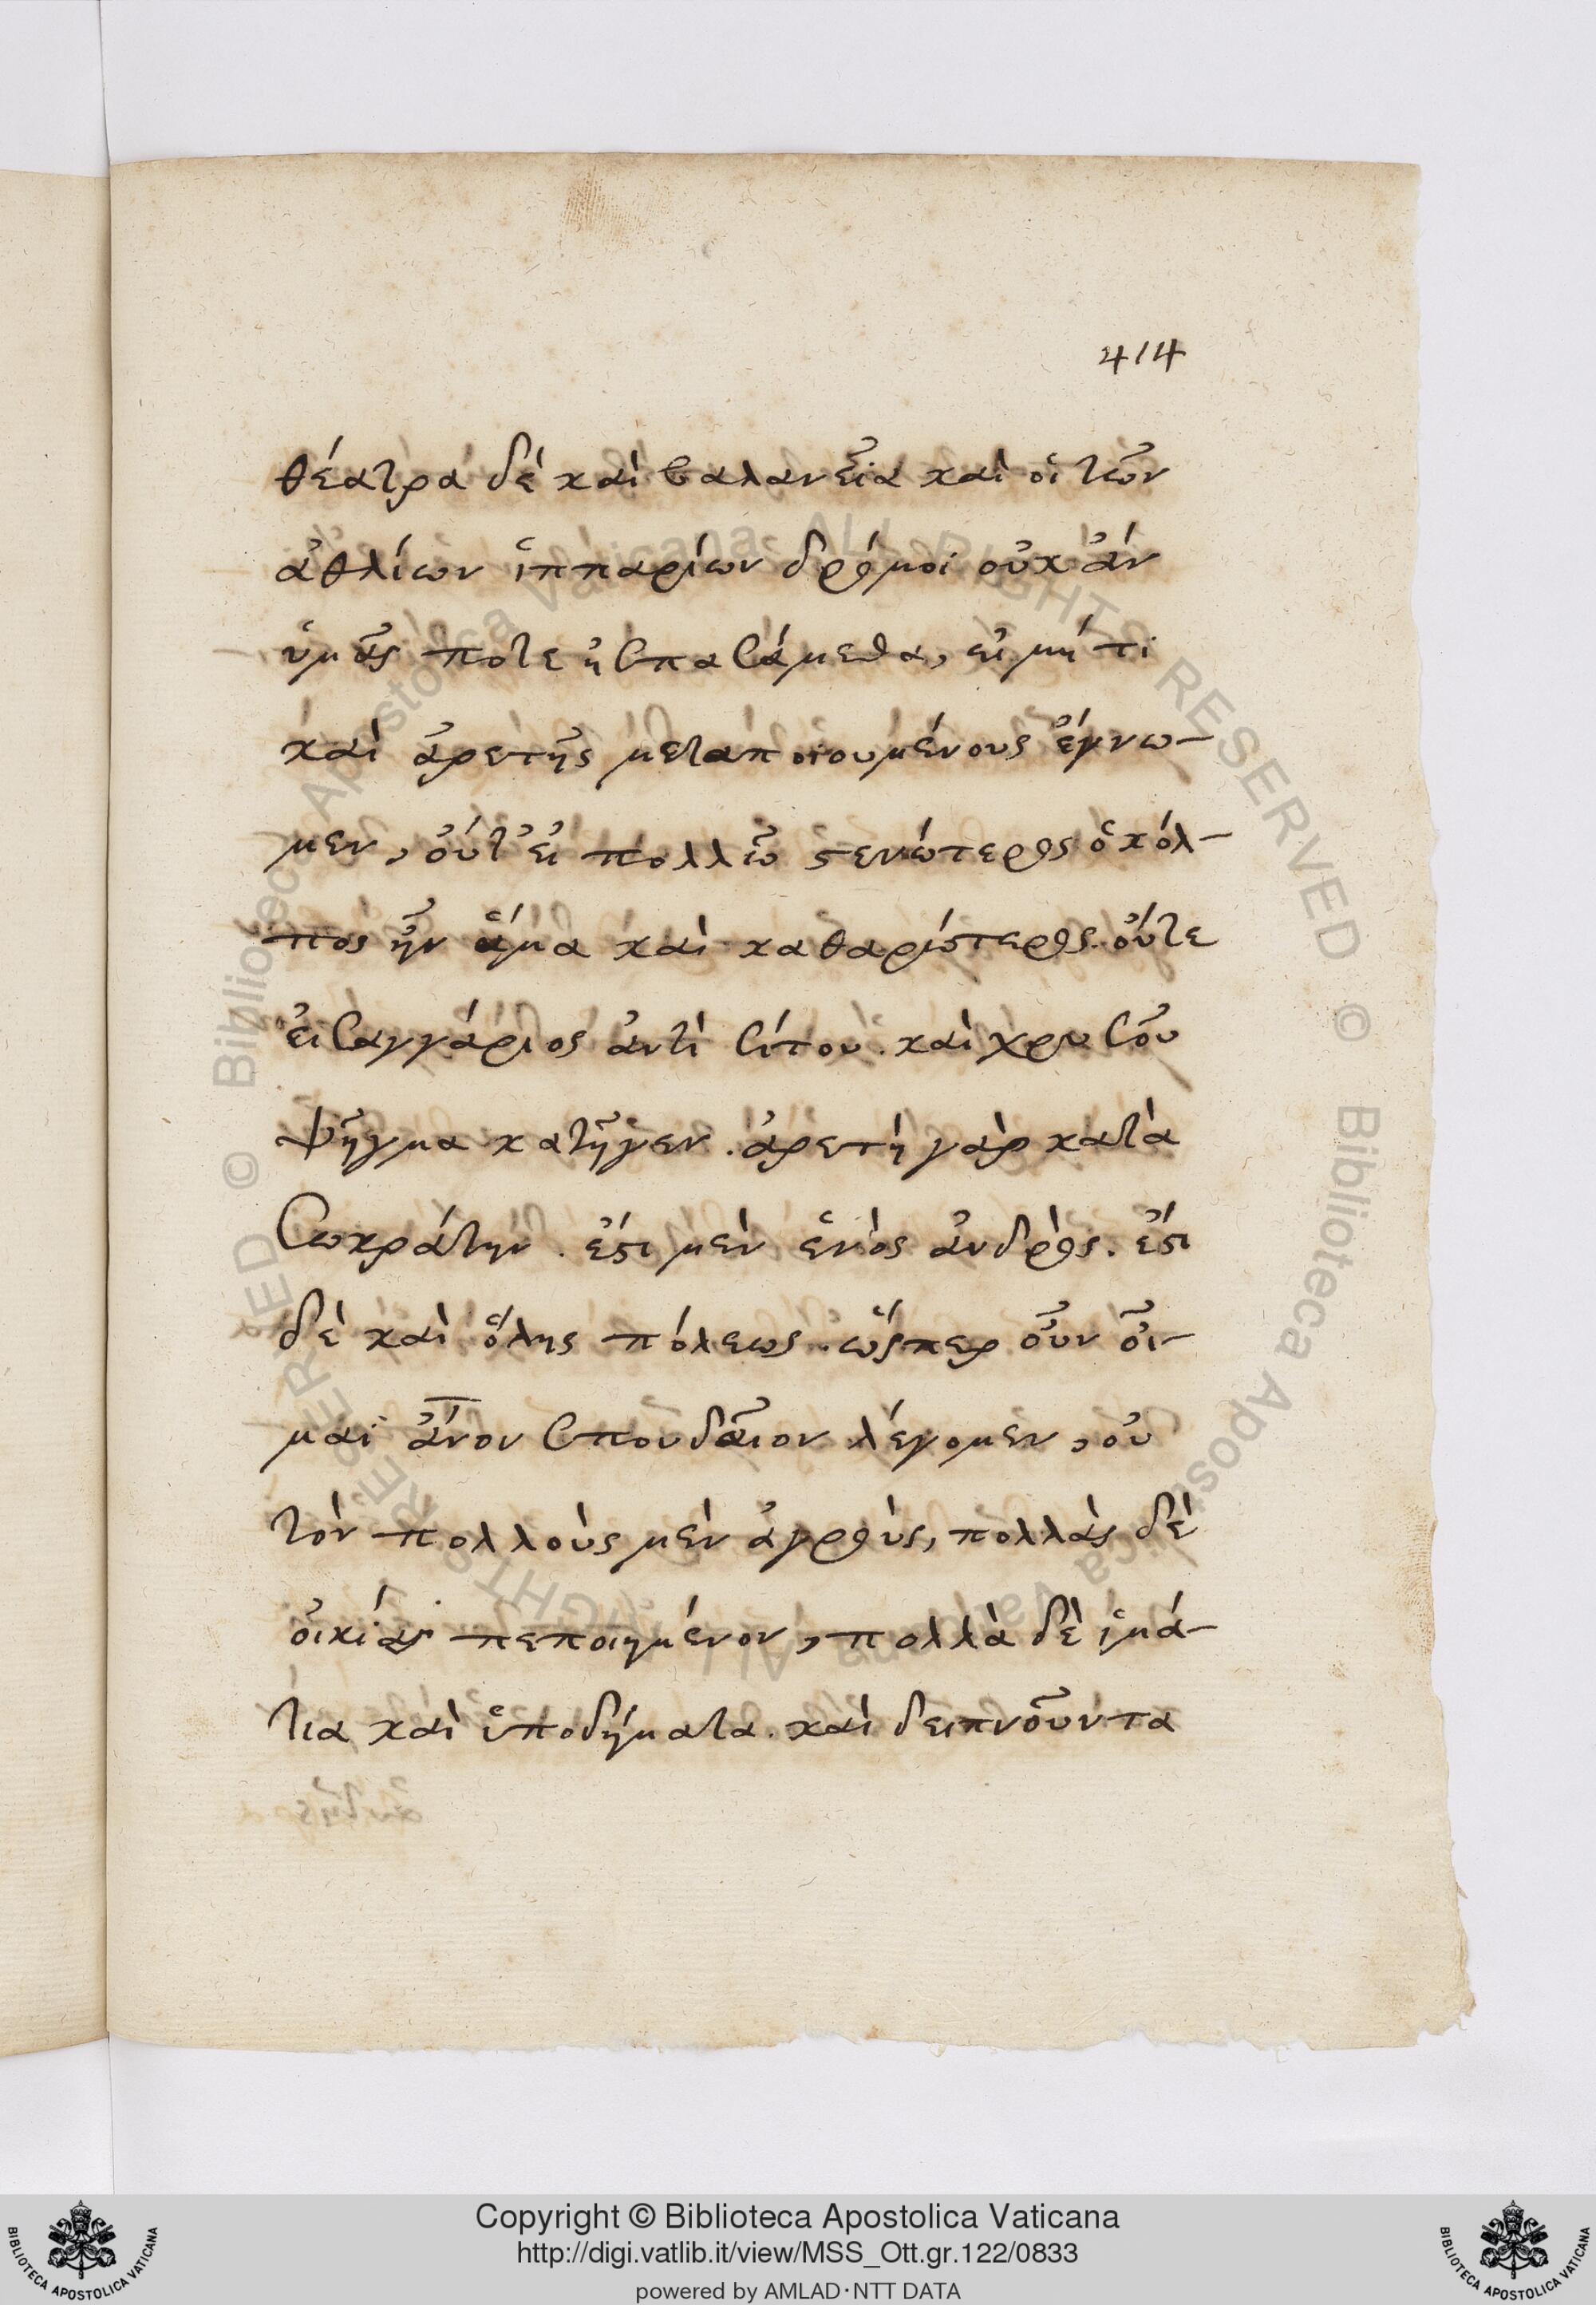 414
θέατρα δὲ καὶ βαλανεῖα καὶ οἱ τῶν
ἀθλίων ἱππαρίων δρόμοι οὐκ ἄν
ὑμᾶς ποτε ἠσπασάμεθα, εἰ μή τι
καὶ ἀρετῆς μεταποιουμένους ἔγνω-
μεν, οὔτ' εἰ πολλῷ στενώτερος ὁ κόλ-
πος ἦν ἅμα καὶ καθαρώτερος. οὔτε
εἰ σαγγάριος ἀντὶ σίτου. καὶ χρυσοῦ
ψῆγμα κατῆγεν. ἀρετὴ γὰρ κατὰ
Σωκράτην. ἔστι μὲν ἑνὸς ἀνδρὸς. ἔστι
δὲ καὶ ὅλης πόλεως. ὥσπερ οὖν οἶ-
μαι ἄνον σπουδαῖον λέγομεν, οὐ
τὸν πολλοὺς μὲν ἀγροὺς, πολλὰς δὲ
οἰκίας πεποιημένον, πολλὰ δὲ ἱμά-
τια καὶ ὑποδήματα. καὶ δειπνοῦντα
Copyright © Biblioteca Apostolica Vaticana
http://digi.vatlib.it/view/MSS_Ott.gr.122/0833
powered by AMLAD·NTT DATA
BIBLIOTECA APOSTOLICA VATICANA
BIBLIOTECA APOSTOLICA VATICANA